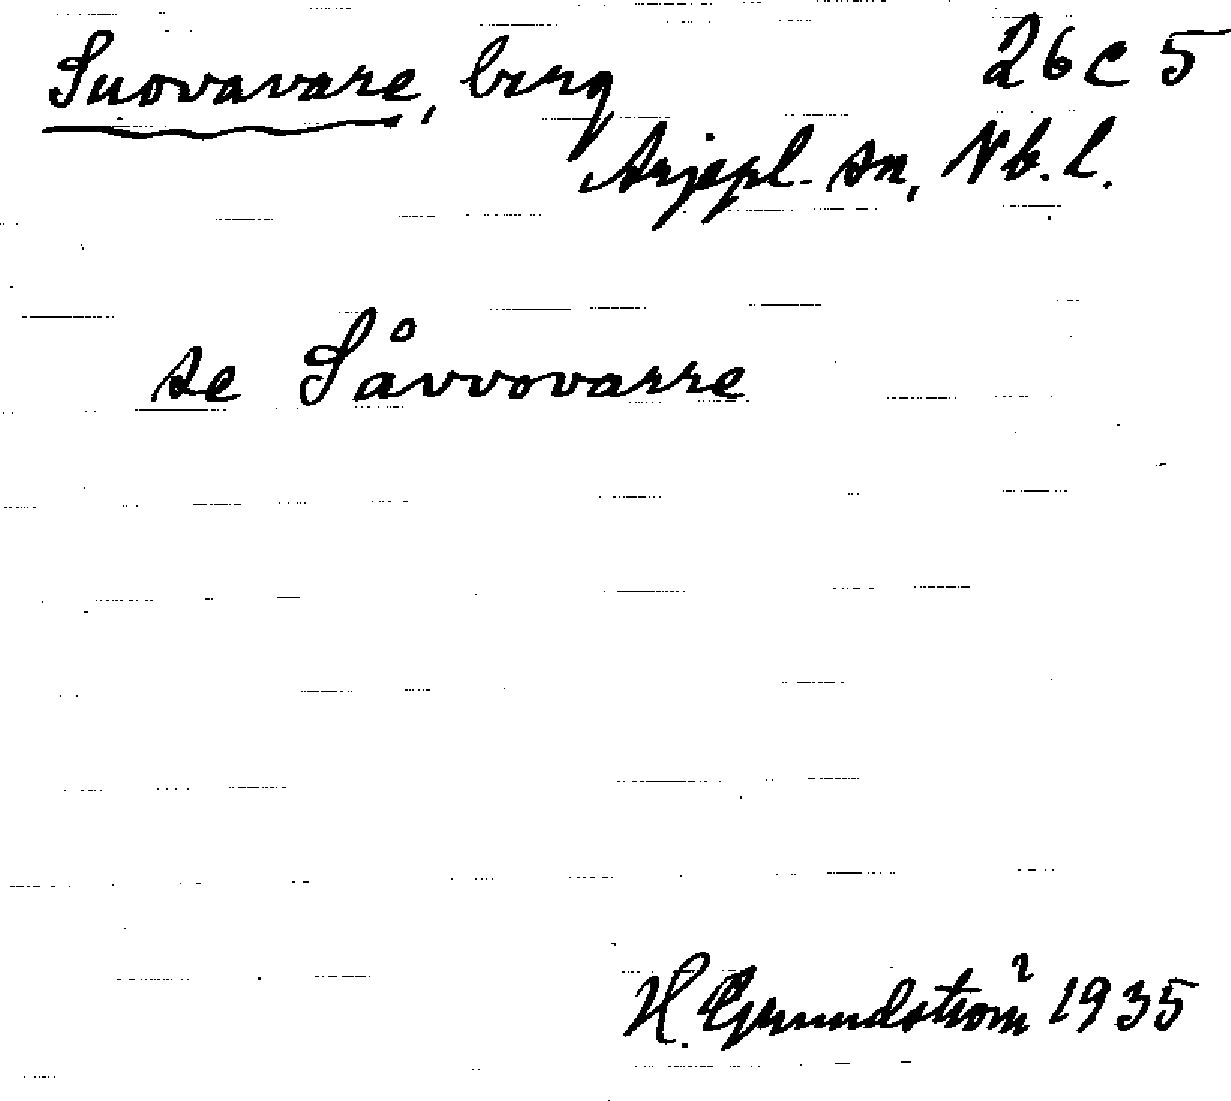 Suovavare, berg 26 C 5
Arjepl. sn, Nb. l.
se Såvvovarre
H. Grundström 1935